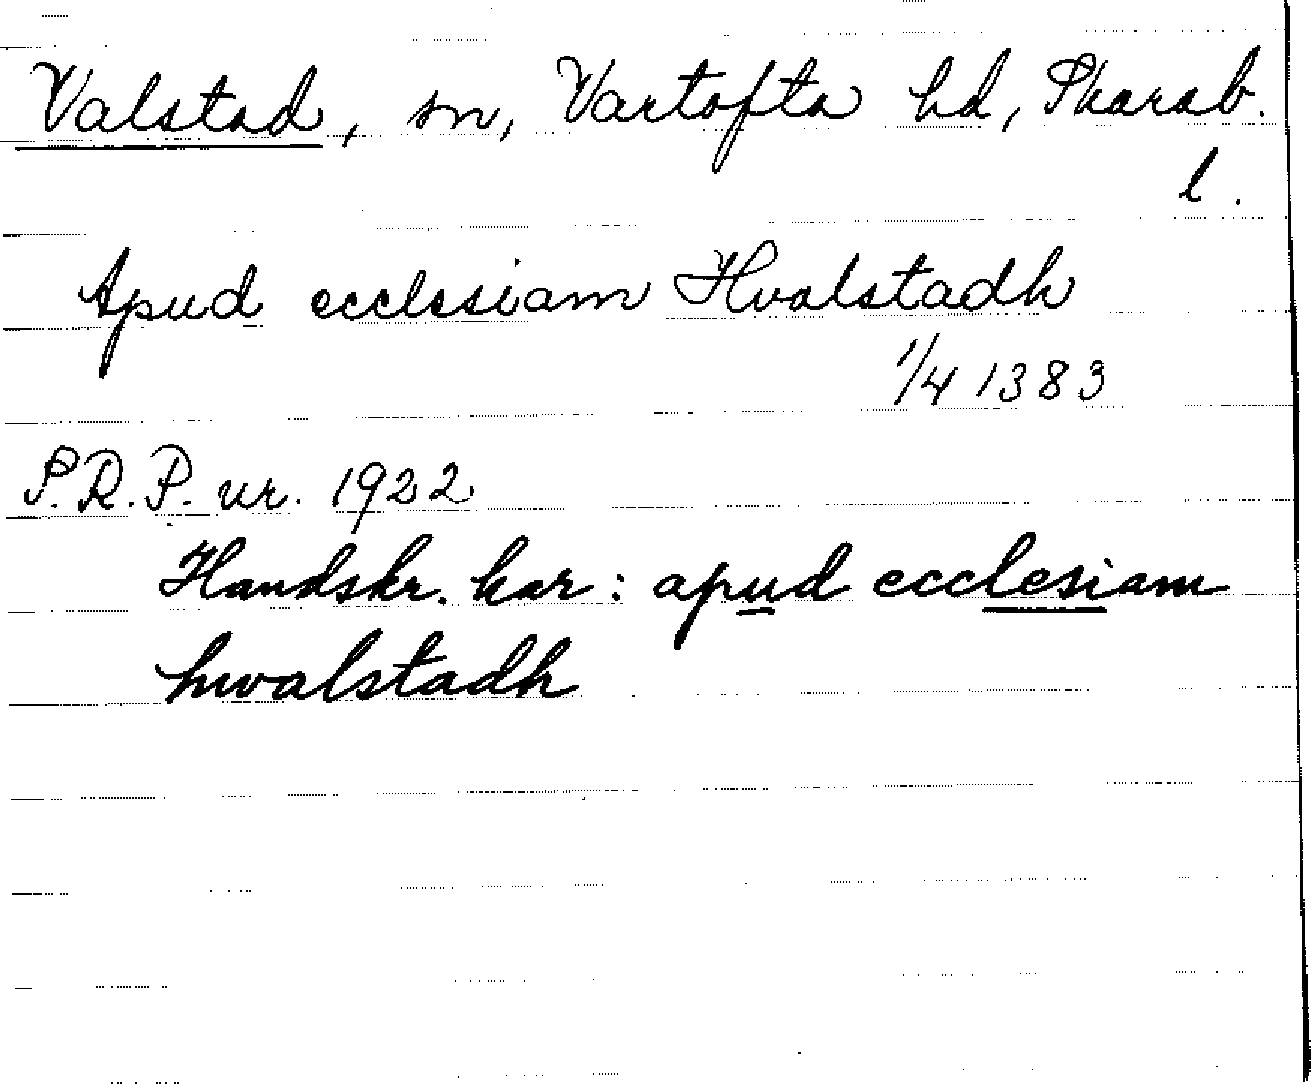 Valstad, sn, Vartofta hd, Skarab.
l.
Apud ecclesiam Hvalstadh
1/4 1383
S.R.P. nr. 1922
Handskr. har: apud ecclesiam
hwalstadh